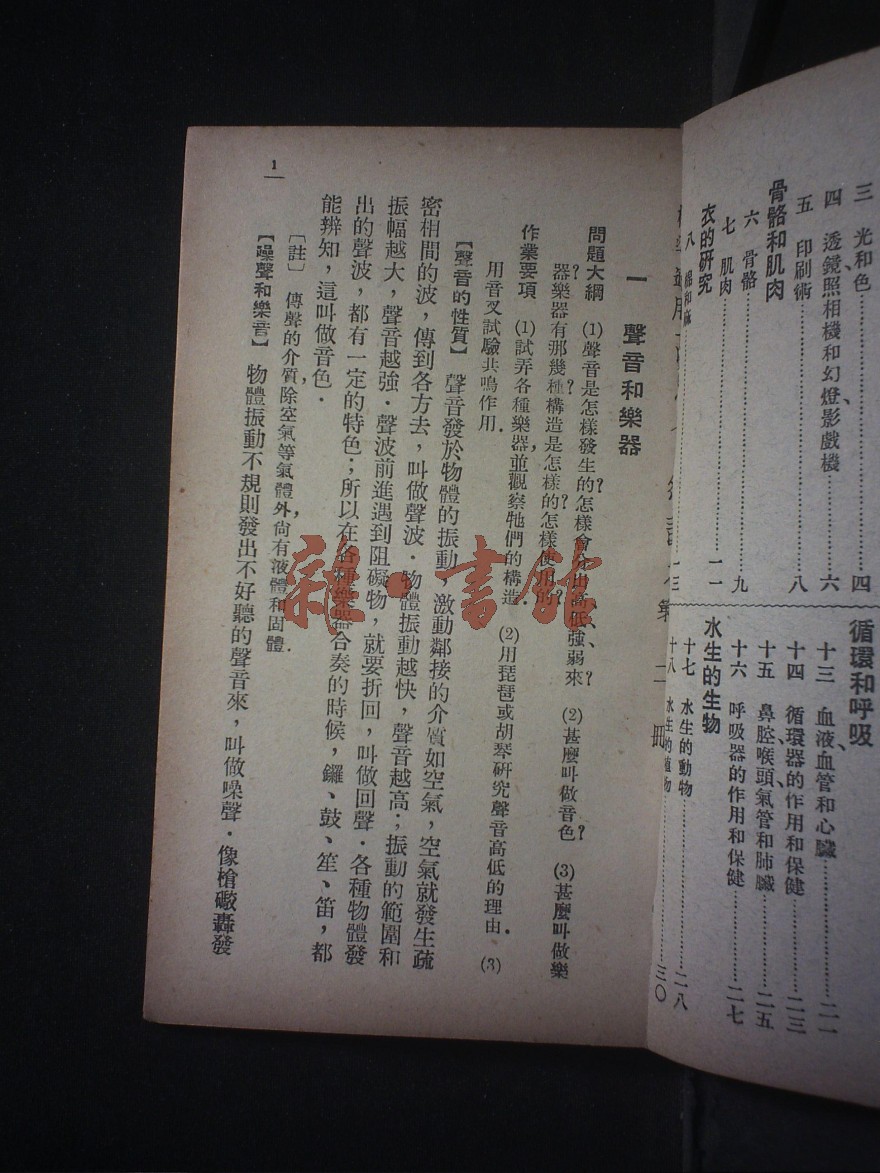 三 光和色………四
四 透鏡、照相機和幻燈、影戲機………六
五 印刷術………八
骨骼和肌肉
六 骨骼………九
七 肌肉………一一
衣的研究
八 棉和麻………一三
循環和呼吸
十三 血液、血管和心臟………二一
十四 循環器的作用和保健………二三
十五 鼻腔、喉頭、氣管和肺臟………二五
十六 呼吸器的作用和保健………二七
水生的生物
十七 水生的動物………二八
十八 水生的植物………三〇
一 聲音和樂器
問題大綱 (1)聲音是怎樣發生的?怎樣會分出高、低、強、弱來? (2)甚麼叫做音色? (3)甚麼叫做樂
器?樂器有那幾種?構造是怎樣的?怎樣使用的?
作業要項 (1)試弄各種樂器,並觀察牠們的構造. (2)用琵琶或胡琴研究聲音高低的理由. (3)
用音叉試驗共鳴作用.
【聲音的性質】 聲音發於物體的振動,激動鄰接的介質如空氣,空氣就發生疏
密相間的波,傳到各方去,叫做聲波.物體振動越快,聲音越高;振動的範圍和
振幅越大,聲音越強.聲波前進遇到阻礙物,就要折回,叫做回聲.各種物體發
出的聲波,都有一定的特色;所以在各種樂器合奏的時候,鑼、鼓、笙、笛,都
能辨知,這叫做音色.
[註] 傳聲的介質,除空氣等氣體外,尚有液體和固體.
【噪聲和樂音】 物體振動不規則發出不好聽的聲音來,叫做噪聲.像槍礮轟發
1
雜·書館